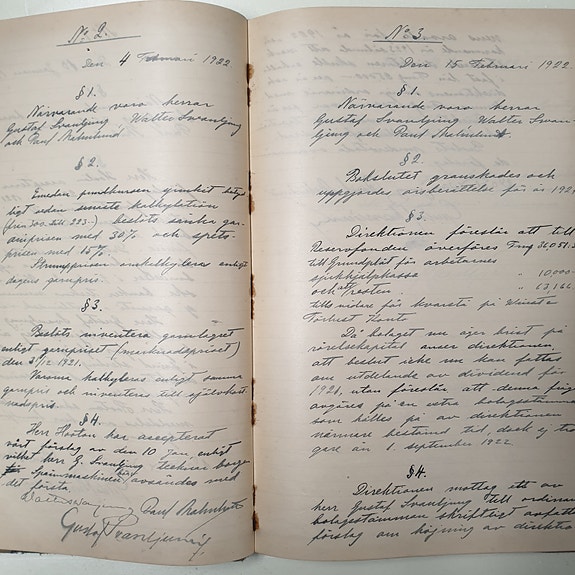 No 2.
Den 4 Februari 1922
§ 1.
Närvarande voro herrar
Gustaf Svanljung Walter Svanljung
och Paul Malmlund
§ 2.
Emedan pundkursen sjunkit
ligt sedan senaste kalkylation
(från 300. till 223.-) beslöts sänka gar-
nprisen med 30% och
prisen med 15%.
omkalkyleras enligt
dagens garnpris.
§ 3.
Beslöts inventera garnlagret
enligt garnpriset (marknadspriset)
den 31/12 1921.
Varorna kalkyleras enligt samma
garnpris och inventeras till självkost-
nadspris.
§ 4.
Herr Hooton har accepterat
vårt förslag av den 10 Jan. enligt
vilket herr G. Svanljung tecknar borgen
Spinnmaskinen avsändes med
det första
Walter Svanljung Paul Malmlund
Gustaf Svanljung
No 3
Den 15 Februari 1922
§ 1.
Närvarande voro herrar
Gustaf Svanljung Walter Svan-
ljung och Paul Malmlund
§ 2.
Bokslutet granskades och
uppgjordes årsberättelse för år 192
§ 3.
Direktionen föreslår att till
Reservfonden överföres Fmg 36051.
till Grundplåt för arbetarnes
sjukhjälpkassa " 10000
och att resten " 67166
tills vidare får kvarstå på Vinst o
Förlust Konto
Då bolaget nu äger brist på
rörelsekapital anser direktionen
att beslut icke nu kan fattas
om utdelande av dividend för
1921, utan föreslår att denna fråg
avgöres på en extra bolagsstämma
som hålles på av direktionen
närmare bestämd tid, dock ej tid
gare än 1. september 1922.
§ 4.
Direktionen mottog ett av
herr Gustaf Svanljung till ordinar
bolagsstämman skriftligt avfatt
förslag om höjning av direktio